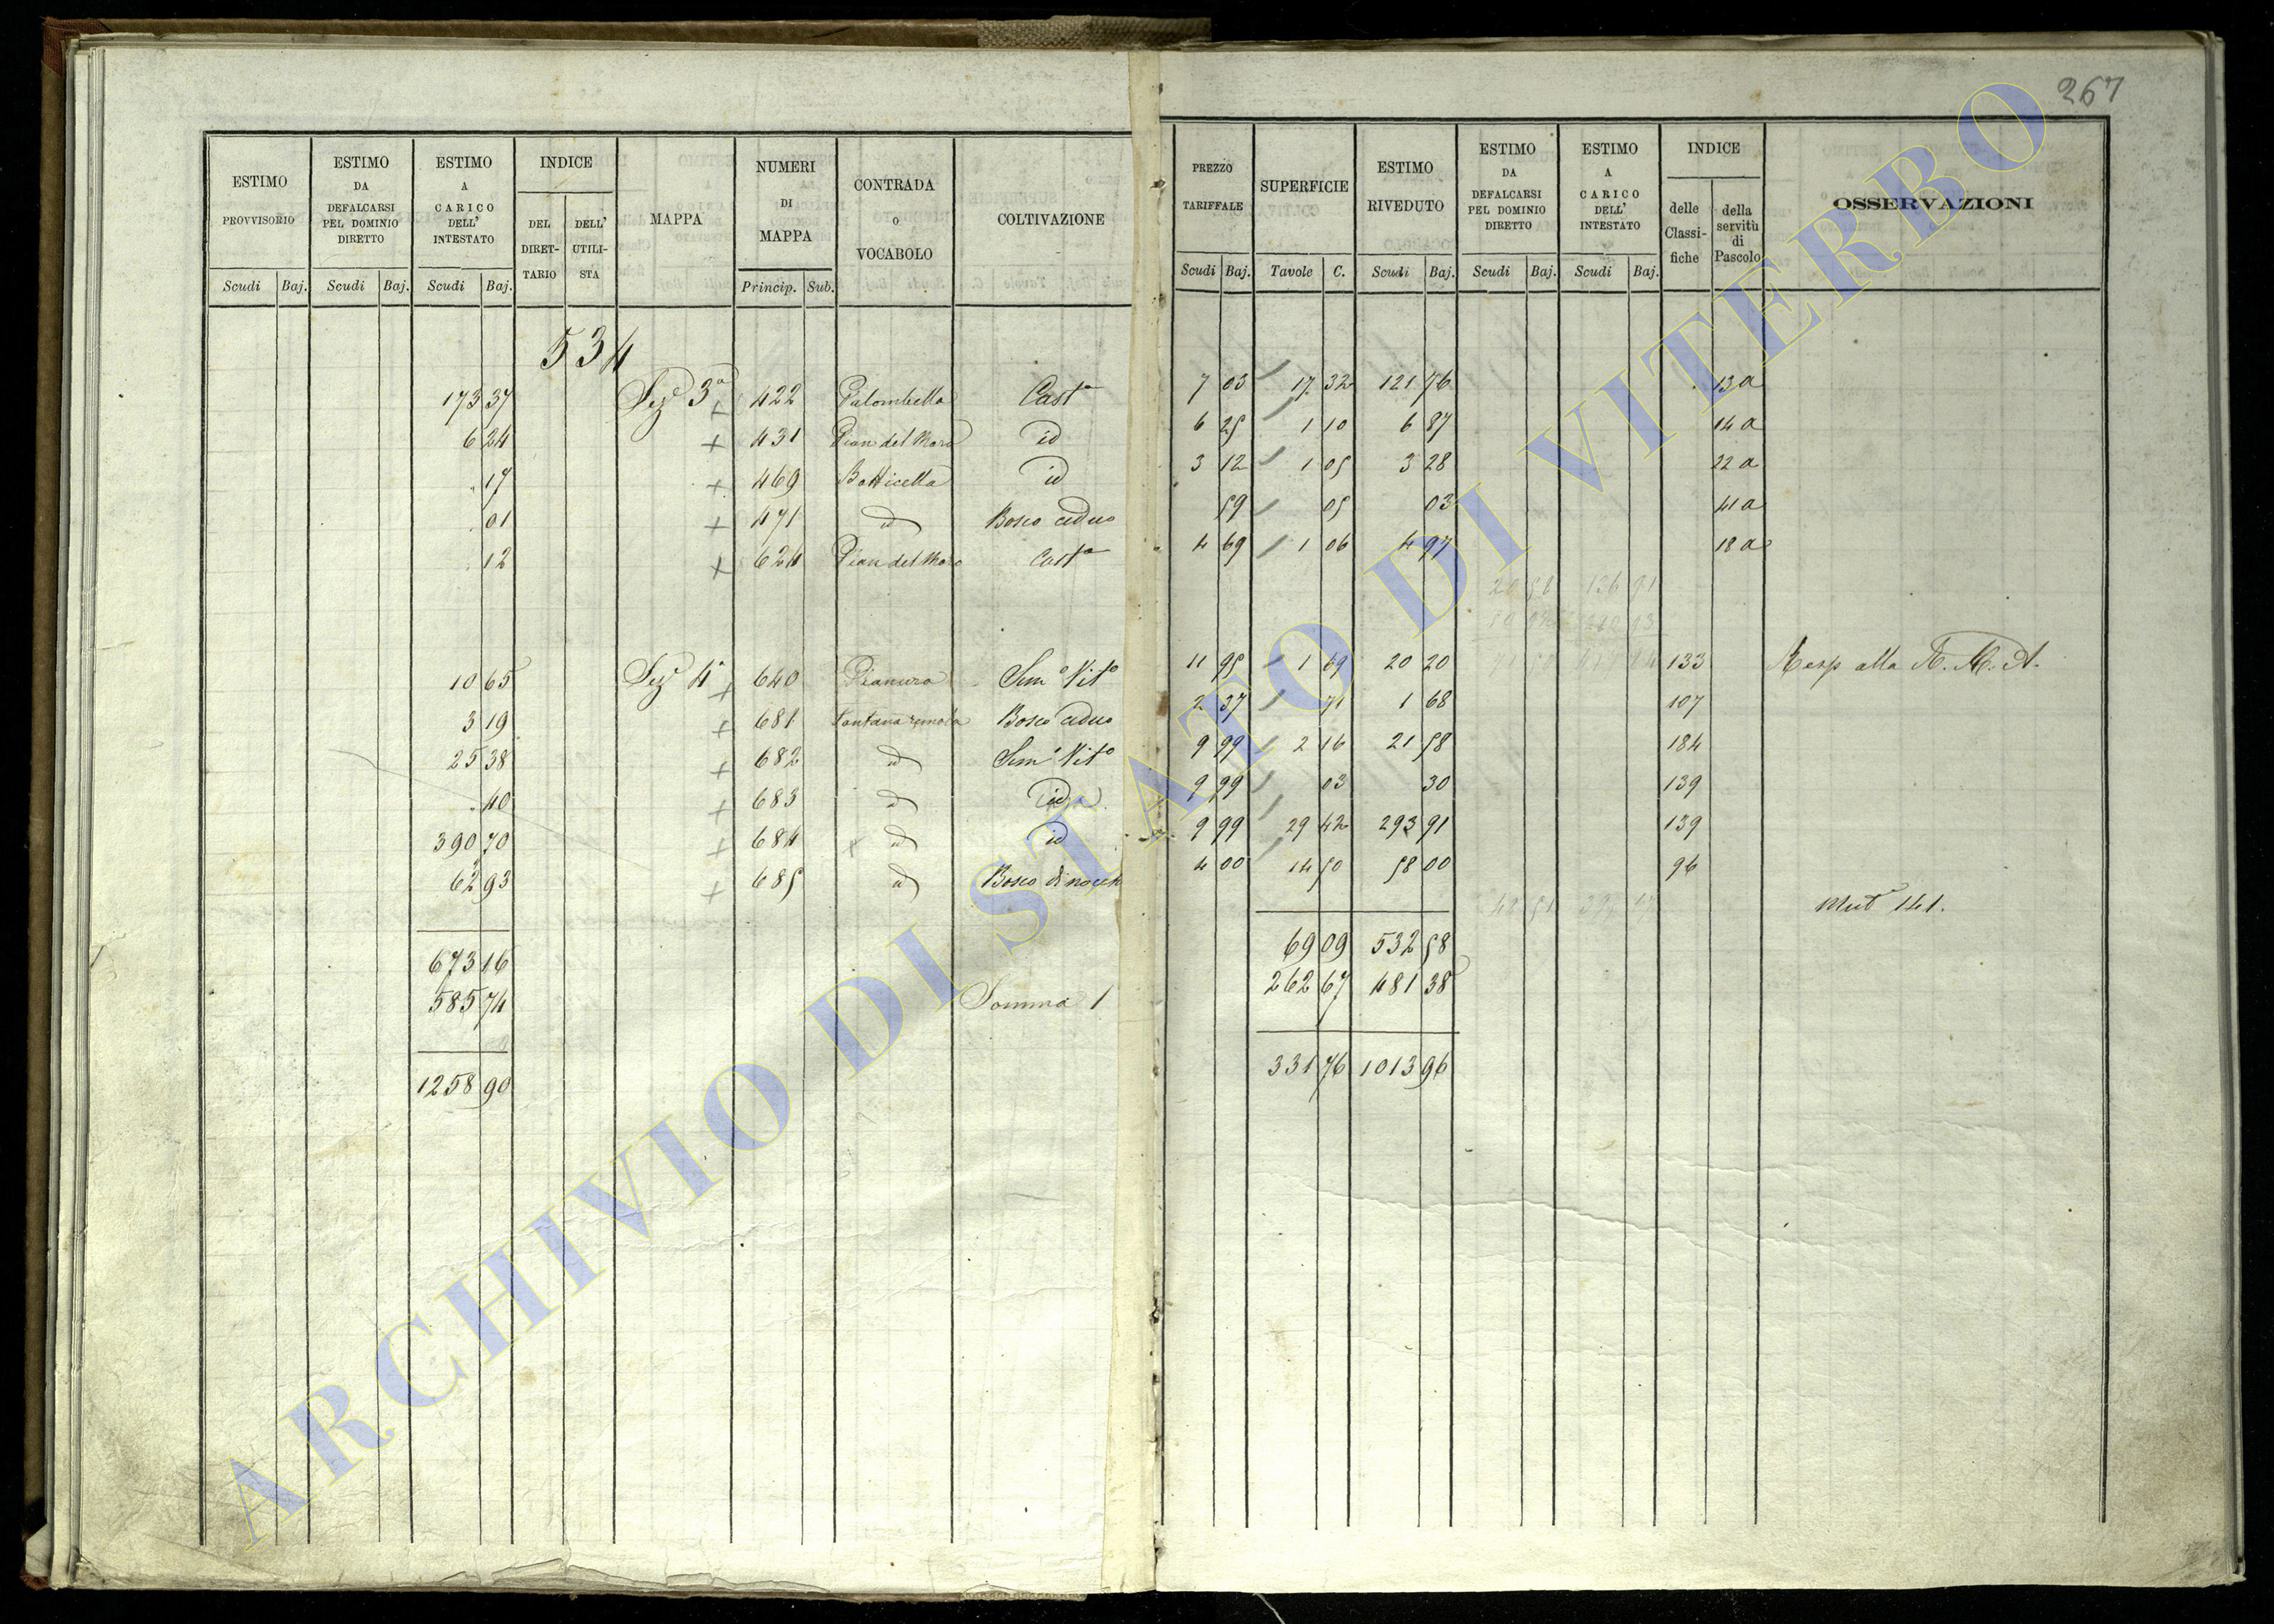 267
ESTIMO PROVVISORIO
ESTIMO DA DEFALCARSI PEL DOMINIO DIRETTO
ESTIMO A CARICO DELL' INTESTATO
INDICE
DEL DIRETTARIO
DELL' UTILISTA
MAPPA
NUMERI DI MAPPA
CONTRADA O VOCABOLO
COLTIVAZIONE
PREZZO TARIFFALE
SUPERFICIE
ESTIMO RIVEDUTO
ESTIMO DA DEFALCARSI PEL DOMINIO DIRETTO
ESTIMO A CARICO DELL' INTESTATO
INDICE
delle Classifiche
della servitù di Pascolo
OSSERVAZIONI
Scudi Baj. Scudi Baj. Scudi Baj. Princip. Sub. Scudi Baj. Tavole C. Scudi Baj. Scudi Baj. Scudi Baj.
534
173 37 Sez 3a + 422 Palombella Casta 7 03 17 32 121 76 13a
6 24 + 431 Pian del Moro id 6 25 1 10 6 87 14a
17 + 469 Botticella id 3 12 1 05 3 28 22a
01 + 471 id Bosco ceduo 59 05 03 41a
12 + 624 Pian del Moro Casta 4 69 1 06 4 97 18a
10 65 Sez 4a + 640 Pianura Semo Vito 11 95 1 69 20 20 133 Resp alla
3 19 + 681 Fontana remola Bosco ceduo 2 37 71 1 68 107
25 38 + 682 id Semo Vito 9 99 2 16 21 58 184
40 + 683 id id 9 99 03 30 139
390 70 + 684 id id 9 99 29 42 293 91 139
62 93 + 685 id Bosco di 4 00 14 50 58 00 96
Mut 141.
673 16 69 09 532 58
585 74 Somma 1 262 67 481 38
1258 90 331 76 1013 96
ARCHIVIO DI STATO DI VITERBO